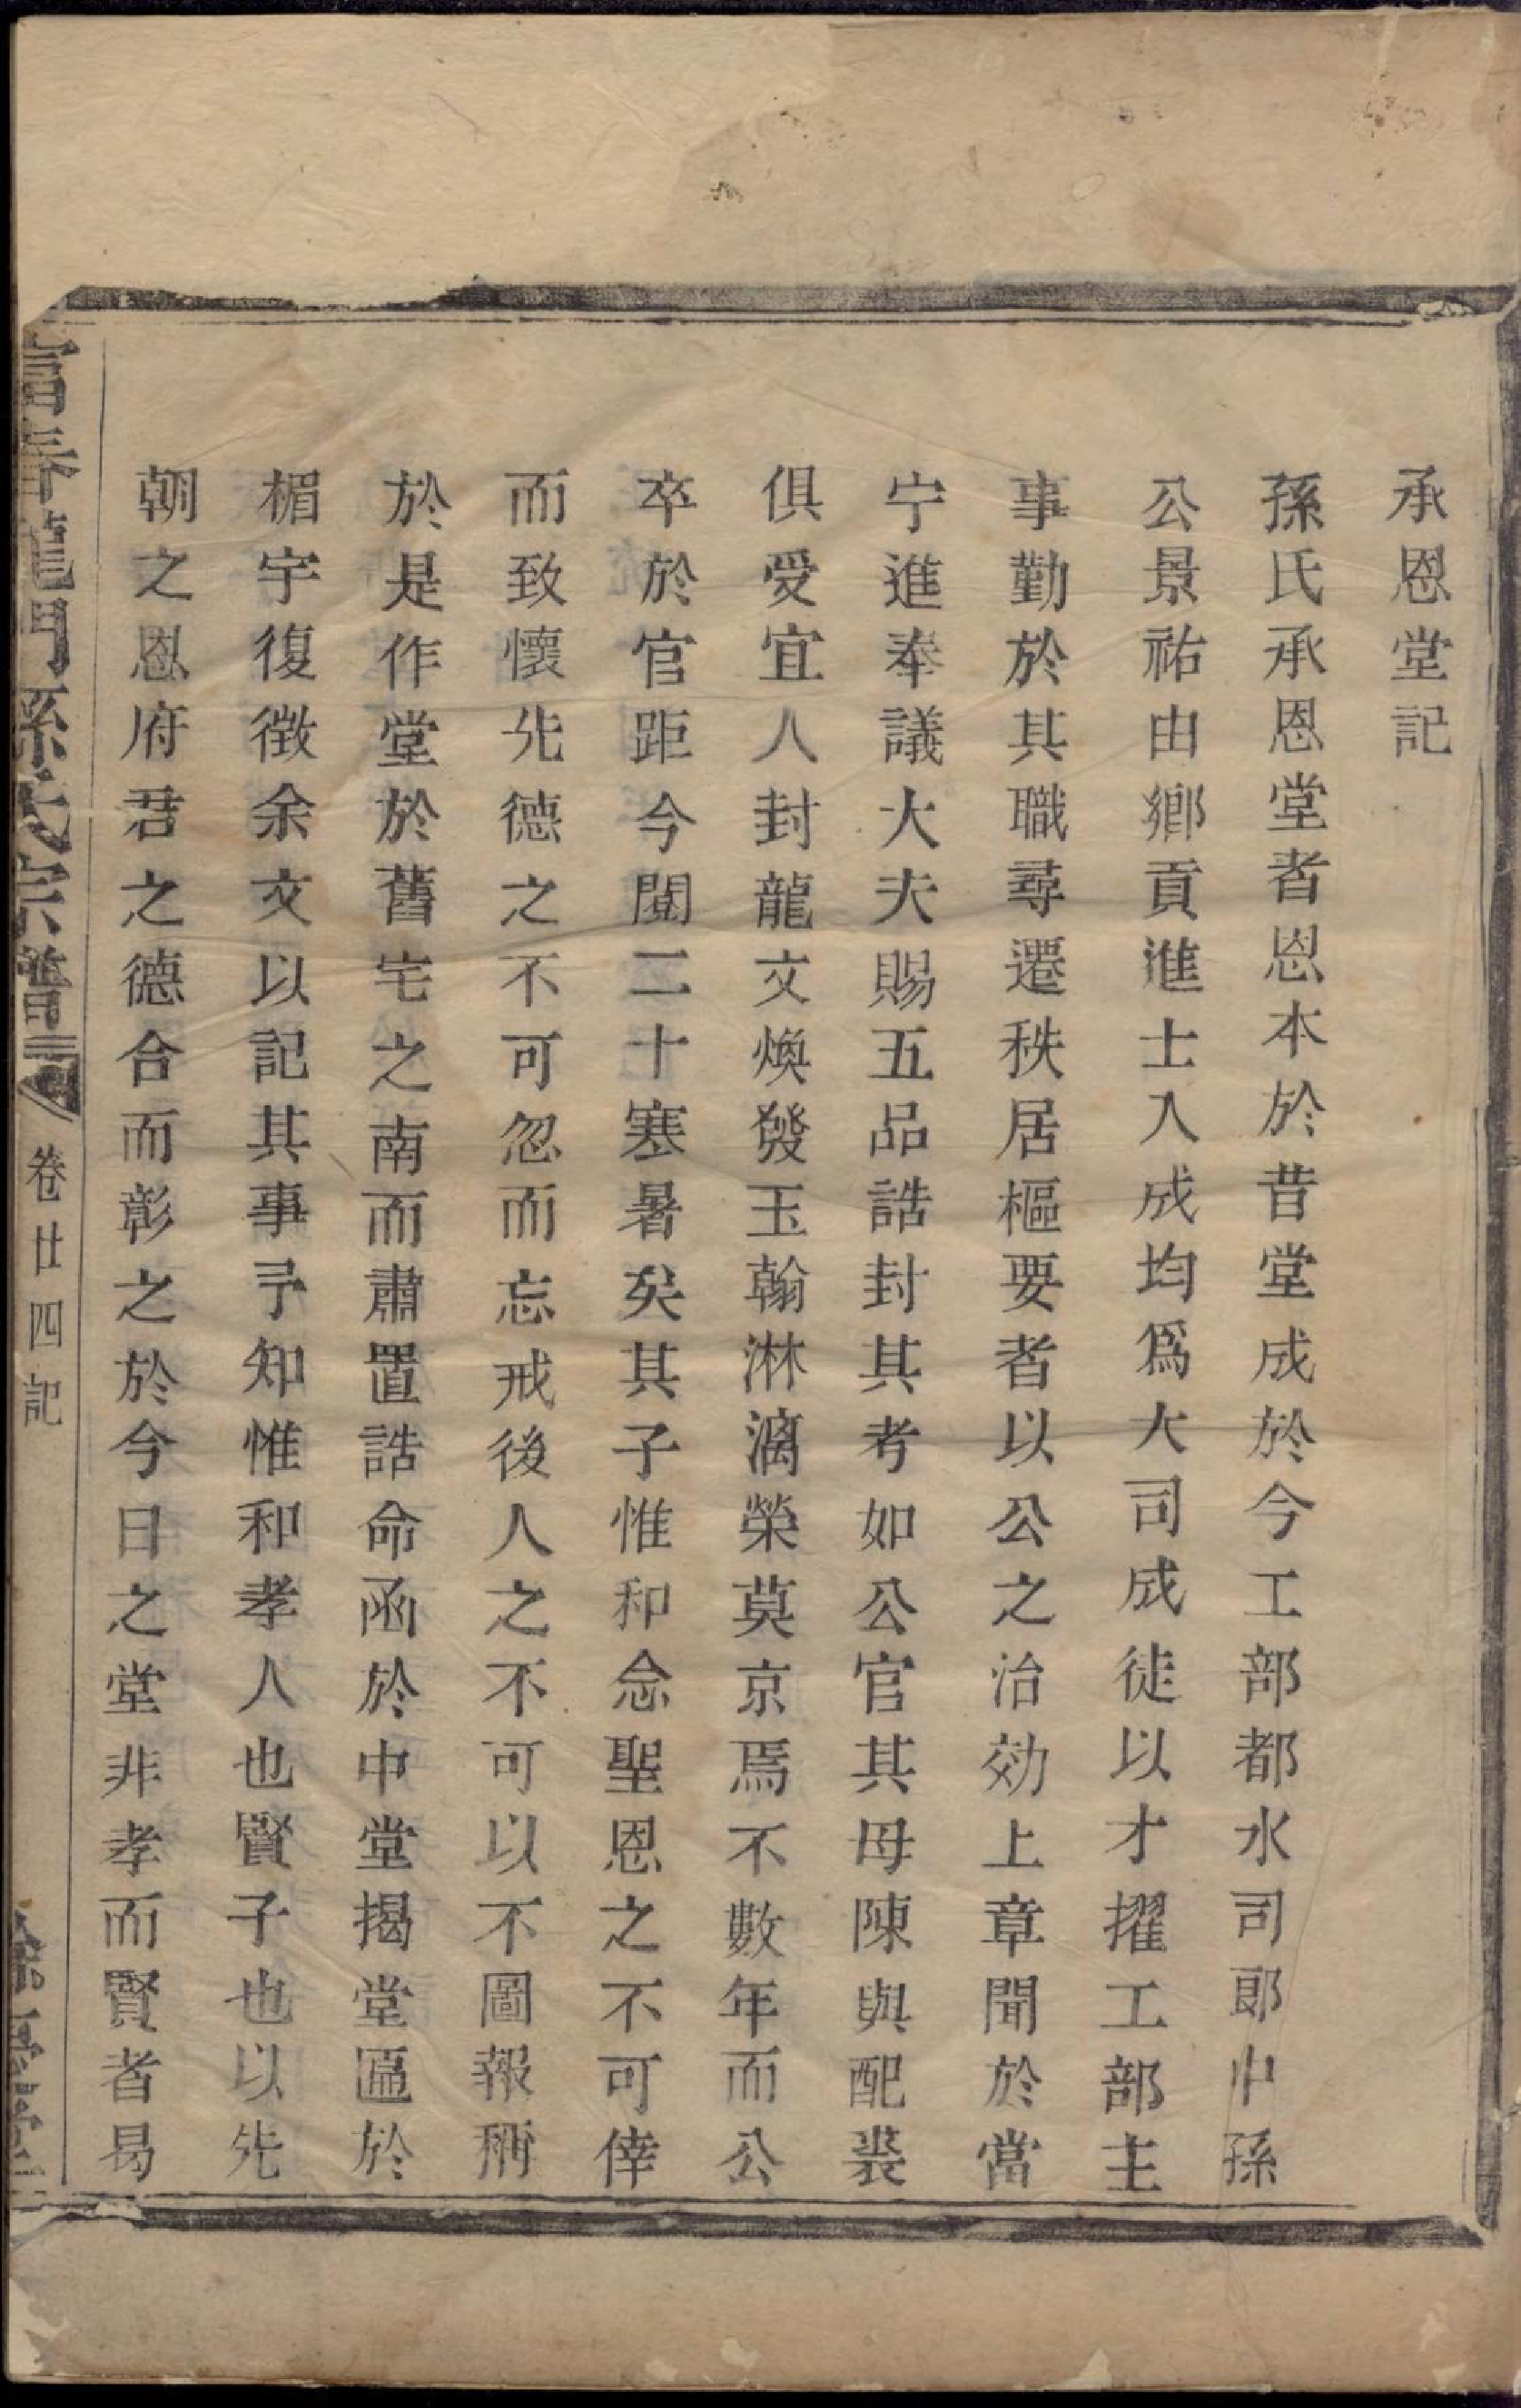 承恩堂記
孫氏承恩堂者恩本於昔堂成於今工部都水司郎中孫
公景祐由鄉貢進士入成均爲大司成徒以才擢工部主
事勤於其職尋遷秩居樞要者以公之治効上章聞於當
宁進奉議大夫賜五品誥封其考如公官其母陳與配裘
俱受宜人封龍文煥發玉翰淋漓榮莫京焉不數年而公
卒於官距今閱二十寒暑矣其子惟和念聖恩之不可倖
而致懷先德之不可忽而忘戒後人之不可以不圖報稱
於是作堂於舊宅之南而肅置誥命函於中堂揭堂匾於
楣宇復徵余文以記其事予知惟和孝人也賢子也以先
朝之恩府君之德合而彰之於今日之堂非孝而賢者曷
富春龍門孫氏宗譜
卷廿四記
餘慶堂